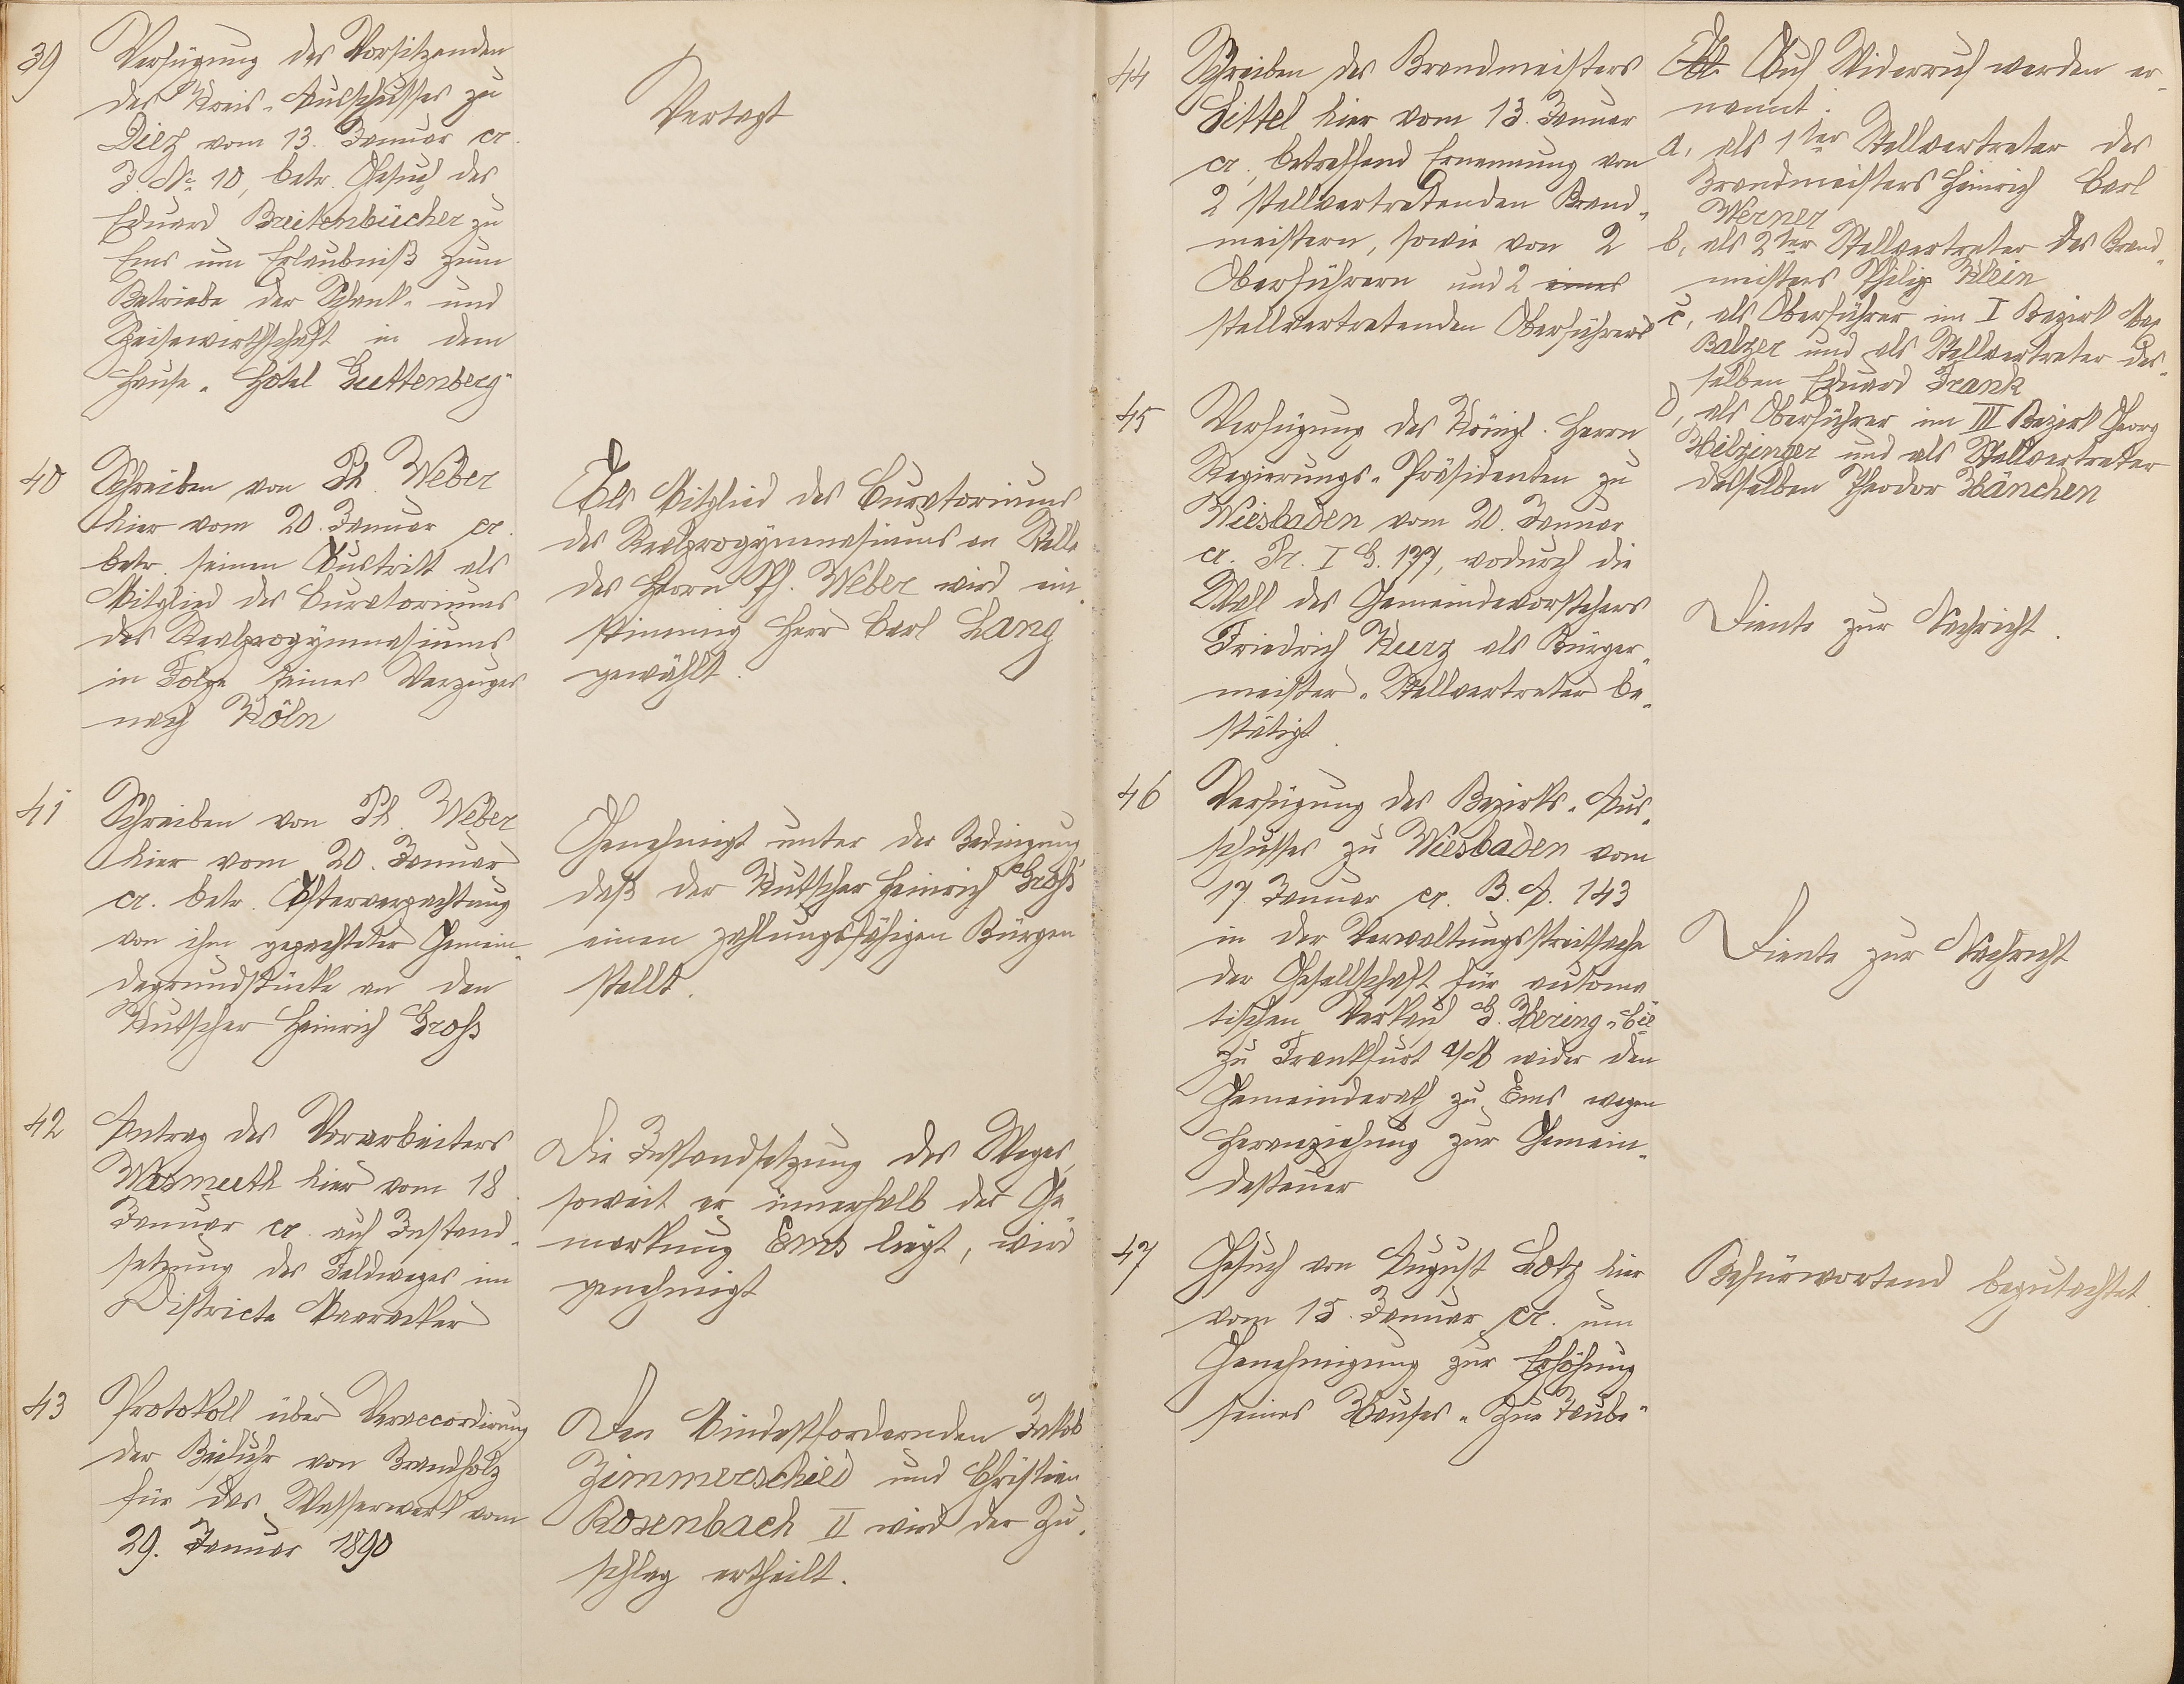 39
Verfügung des Vorsitzenden
des Kreis-Ausschusses zu
Diez vom 13. Januar cr.
J. No. 10, betr. Gesuch des
Eduard Breitenbücher zu
Ems um Erlaubniß zum
Betriebe der Schank- und
Speisewirthschaft in dem
Hause „Hôtel Guttenberg"
Vertagt
40
Schreiben von Ph. Weber
hier vom 20. Januar cr.
betr. seinen Austritt als
Mitglied des Curatoriums
des Realprogymnasiums
in Folge seines Verzuges
nach Köln
Als Mitglied des Curatoriums
des Realprogymnasiums an Stelle
des Herrn Ph. Weber wird ein-
stimmig Herr Carl Lang
gewählt.
41
Schreiben von Ph. Weber
hier vom 20. Januar
cr. betr. Afterverpachtung
von ihm gepachteter Gemein-
degrundstücke an den
Kutscher Heinrich Groß
Genehmigt unter der Bedingung
daß der Kutscher Heinrich Groß
einen zahlungsfähigen Bürgen
stellt.
42
Antrag des Vorarbeiters
Wasmuth hier vom 18.
Januar cr. auf Instand-
setzung des Feldweges im
Districte
Die Instandsetzung des Weges,
soweit er innerhalb der Ge-
markung Ems liegt, wird
genehmigt
43
Protokoll über Veraccordirung
der Beifuhr von Brandholz
für das Wasserwerk vom
29. Januar 1890
Den Mindestfordernden Jakob
Zimmerschied und Christian
Rosenbach II wird der Zu-
schlag ertheilt.
44
Schreiben des Brandmeisters
Sittel hier vom 13. Januar
cr., betreffend Ernennung von
2 stellvertretenden Brand-
meistern, sowie von 2
Oberführern und 2 eines
stellvertretenden Oberführers
Auf Widerruf werden er-
nannt:
a, als 1ter Stellvertreter des
Brandmeisters Heinrich Carl
Werner
b, als 2ter Stellvertreter des Brand-
meisters Philip Klein
c, als Oberführer im I Bezirk Max
Balzer und als Stellvertreter des-
selben Eduard Frank
d, als Oberführer im III Bezirk Georg
Hilzinger und als Stellvertreter
desselben Theodor Hänchen
45
Verfügung des Königl. Herrn
Regierungs-Präsidenten zu
Wiesbaden vom 20. Januar
cr. Pr. I G. 177, wodurch die
Wahl des Gemeindevorstehers
Friedrich Kurz als Bürger-
meister-Stellvertreter be-
stätigt.
Diente zur Nachricht.
46
Verfügung des Bezirks-Aus-
schusses zu Wiesbaden vom
17. Januar cr. B. A. 143
in der Verwaltungsstreitsache
der Gesellschaft für automa
tischen Verkauf G. Hering & Cie
zu Frankfurt a/M wider den
Gemeinderath zu Ems wegen
Heranziehung zur Gemein-
desteuer
Diente zur Nachricht
47
Gesuch von August Lotz hier
vom 15. Januar cr. um
Genehmigung zur Erhöhung
seines Hauses „Zur Taube"
Befürwortend begutachtet.